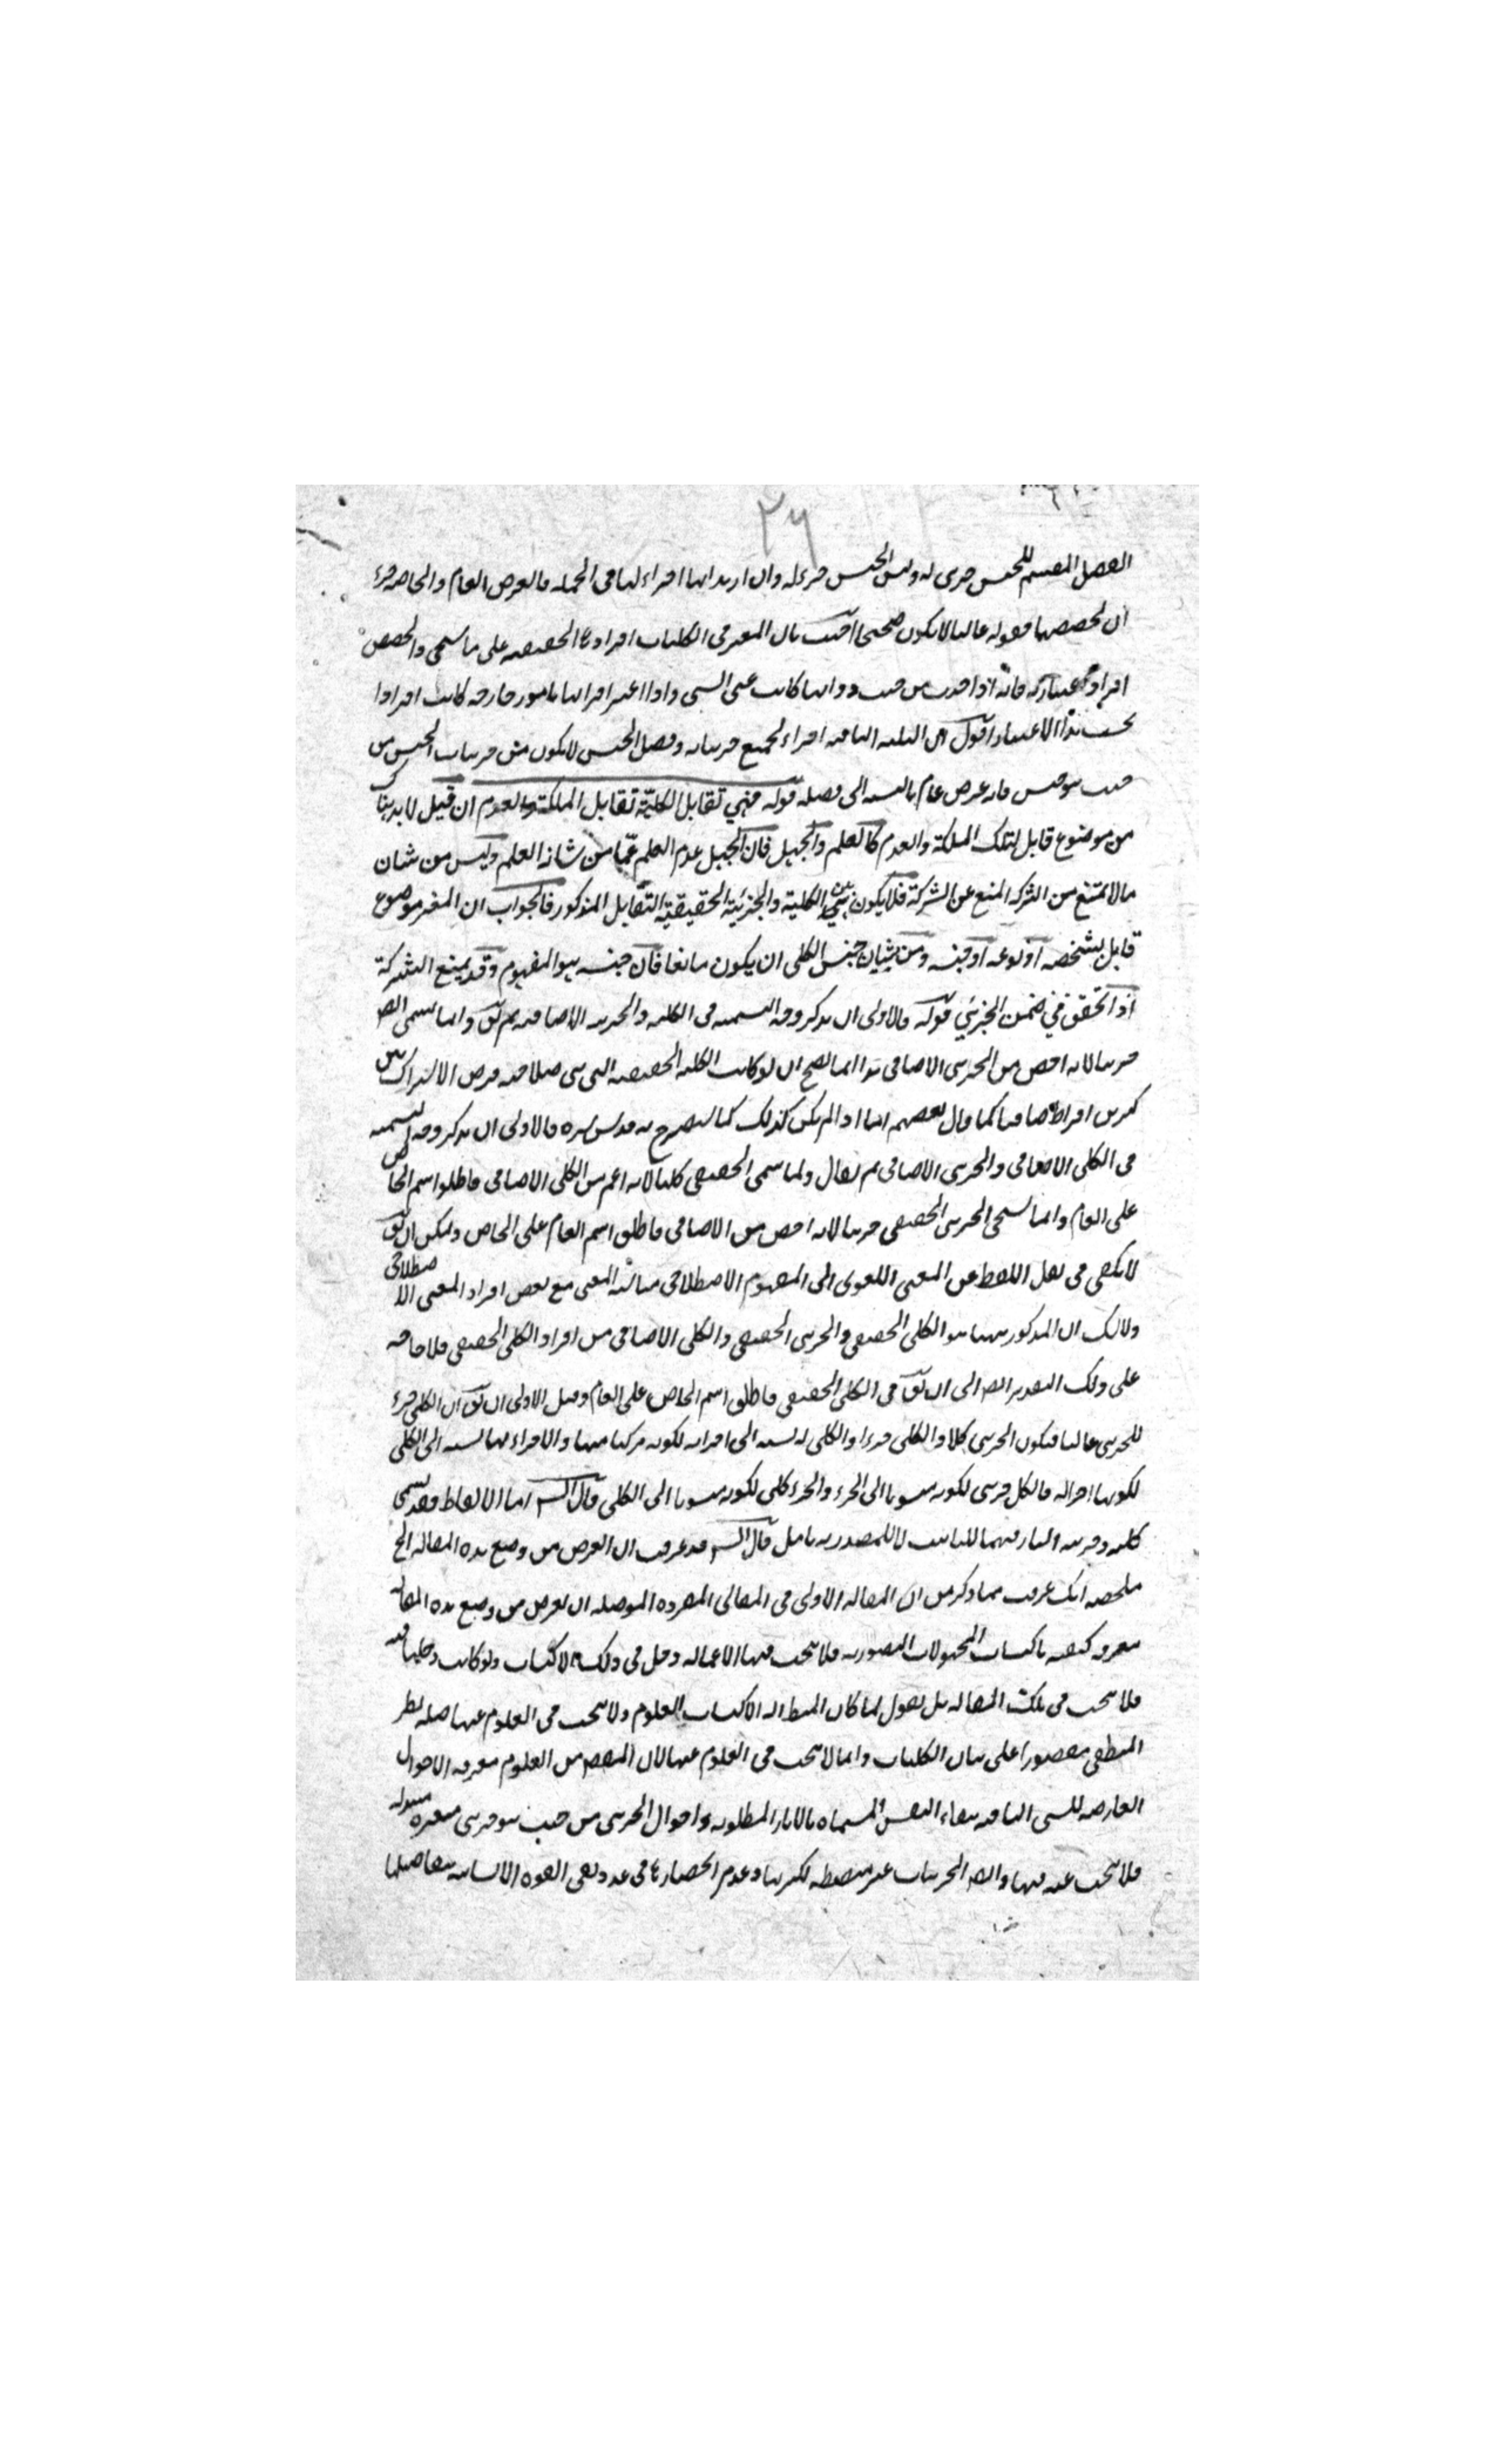 ٢٦
الفصل المقسم للجنس جزئى له وليس الجنس جزء له وان اريد انها اجزاء لها فى الجملة فالعرض العام والخاصة جزء
ان لحصصها فقوله غالبا لا يكون صحيحا اجيب بان المعتبر فى الكليات افرادها الحقيقية على ما سيجئ والحصص
افراد اعتبارية فانه اذا اخذت من حيث ذواتها كانت عين الشئ واذا اعتبر اقترانها بامور خارجة كانت افرادا
بحسب هذا الاعتبار اقول ان الثلثة الباقية اجزاء لجميع جزئياته وفصل الجنس لا يكون من جزئيات الجنس من
حيث هو جنس فانه عرض عام بالنسبة الى فصله قوله فهي تقابل الكليّة تقابل الملكة والعدم ان قيل لابد هناك
من موضوع قابل لتلك الملكة والعدم كالعلم والجهل فان الجهل عدم العلم عمّا من شانه العلم وليس من شان
مالا يمتنع من الشركة المنع عن الشركة فلا يكون بين الكلية والجزئية الحقيقية التقابل المذكور فالجواب ان المعتبر موضوع
قابل بشخصه او نوعه او جنسه ومن شان جنس الكلى ان يكون مانعا فان جنسه هو المفهوم وقد يمنع الشركة
اذا تحقق في ضمن الجزئي قوله فالاولى ان يذكر وجه التسمية فى الكلية والجزئية الاضافية ثم يق وانما يسمى ايض
جزئيا لانه اخص من الجزئى الاضافى هذا انما يصح ان لو كانت الكلية الحقيقية التى هى صلاحية فرض الاشتراك بين
كثيرين اضافيا كما قال بعضهم اما اذا لم يكن كذلك كما سيصرح به قدس سره فالاولى ان يذكر وجه التسمية
فى الكلى الاضافى والجزئى الاضافى ثم يقال ولما سمى الحقيقى كليا لانه اعم من الكلى الاضافى فاطلق اسم الخاص
على العام وانما سمى الجزئى الحقيقى جزئيا لانه اخص من الاضافى فاطلق اسم العام على الخاص ويمكن ان يق
لا يكفى فى نقل اللفظ عن المعنى اللغوى الى المفهوم الاصطلاحى مناسبة المعنى مع بعض افراد المعنى الاصطلاحى
ولا شك ان المذكور ههنا هو الكلى الحقيقى والجزئى الحقيقى والكلى الاضافى من افراد الكلى الحقيقى فلا حاجة
على ذلك التقدير ايضا الى ان يق فى الكلى الحقيقى فاطلق اسم الخاص على العام وقيل الاولى ان يق ان الكلى جزء
للجزئى غالبا فيكون الجزئى كلا والكلى جزءا والكلى له نسبة الى اجزائه لكونه مركبا منها والاجزاء لها نسبة الى الكلى
لكونها اجزاله فالكل جزئى لكونه منسوبا الى الجزء والجزء كلى لكونه منسوبا الى الكلى قال الش اما الالفاظ فقد تسمى
كلية وجزئية التاء فيهما للتانيث لا للمصدرية تامل قال الش قد عرفت ان الغرض من وضع هذه المقالة الخ
ملخصه انك عرفت مما ذكر من ان المقالة الاولى فى المعانى المفردة الموصلة ان الغرض من وضع هذه المقالة
معرفة كيفية باكتساب المجهولات التصورية فلا يبحث فيها الا عماله دخل فى ذلك الاكتساب
فلا يبحث فى تلك المقالة بل نقول لما كان المنطق اله لاكتساب العلوم ولا يبحث فى العلوم عنها صار نظر
المنطقى مقصورا على بيان الكليات وانما لا يبحث فى العلوم عنها لان المقصود من العلوم معرفة الاحوال
العارضة للشئ الباقية ببقاء النفس المسماة بالاثار المطلوبة واحوال الجزئى من حيث هو جزئى متغيرة متبدلة
فلا يبحث عنه فيها وايضا الجزئيات غير منضبطة لكثرتها وعدم انحصارها فى عدد يفى القوة الانسانية بتفاصيلها